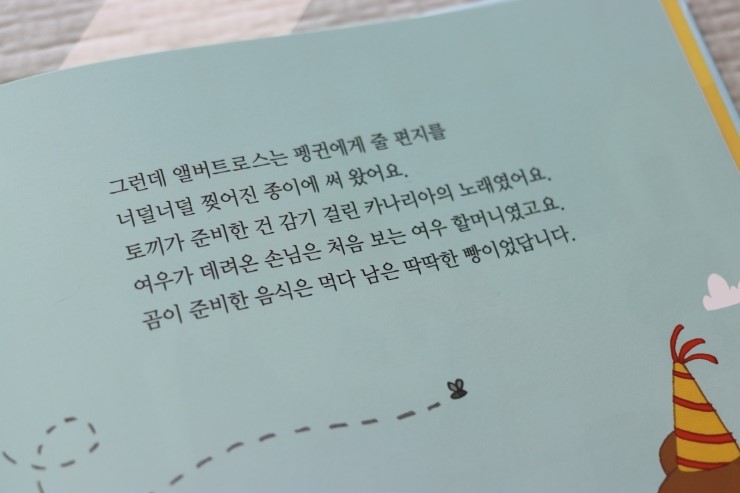 그런데 앨버트로스는 펭귄에게 줄 편지를
너덜너덜 찢어진 종이에 써 왔어요.
토끼가 준비한 건 감기 걸린 카나리아의 노래였어요.
여우가 데려온 손님은 처음 보는 여우 할머니였고요.
곰이 준비한 음식은 먹다 남은 딱딱한 빵이었답니다.